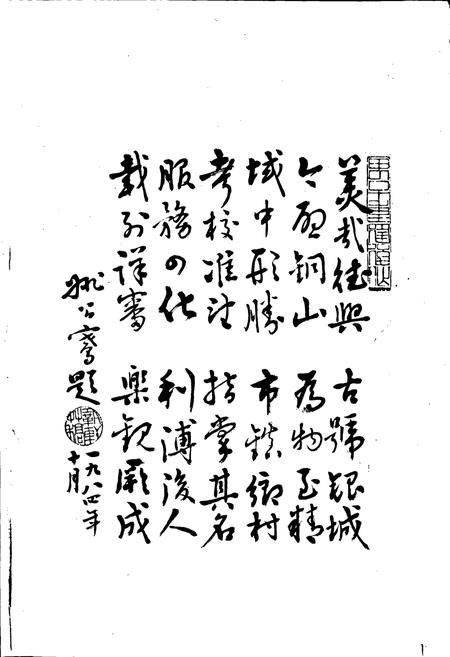 美哉德興 古號銀城
今 銅山 為物至精
域中形勝 市鎮鄉村
考校准注 指掌其名
服務四化 利溥後人
載 詳審 樂觀厥成
姚公騫題
一九八四年
十月
1